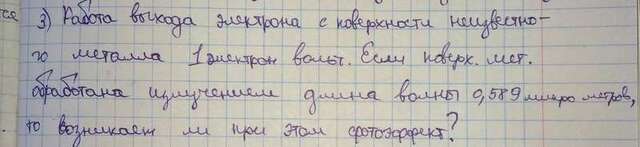 3) Работа выхода электрона с поверхности неизвестно-
го металла 1 электрон вольт. Если поверх. мет.
обработана излучением длина волны 0,589 микро метров,
то возникает ли при этом фотоэффект?